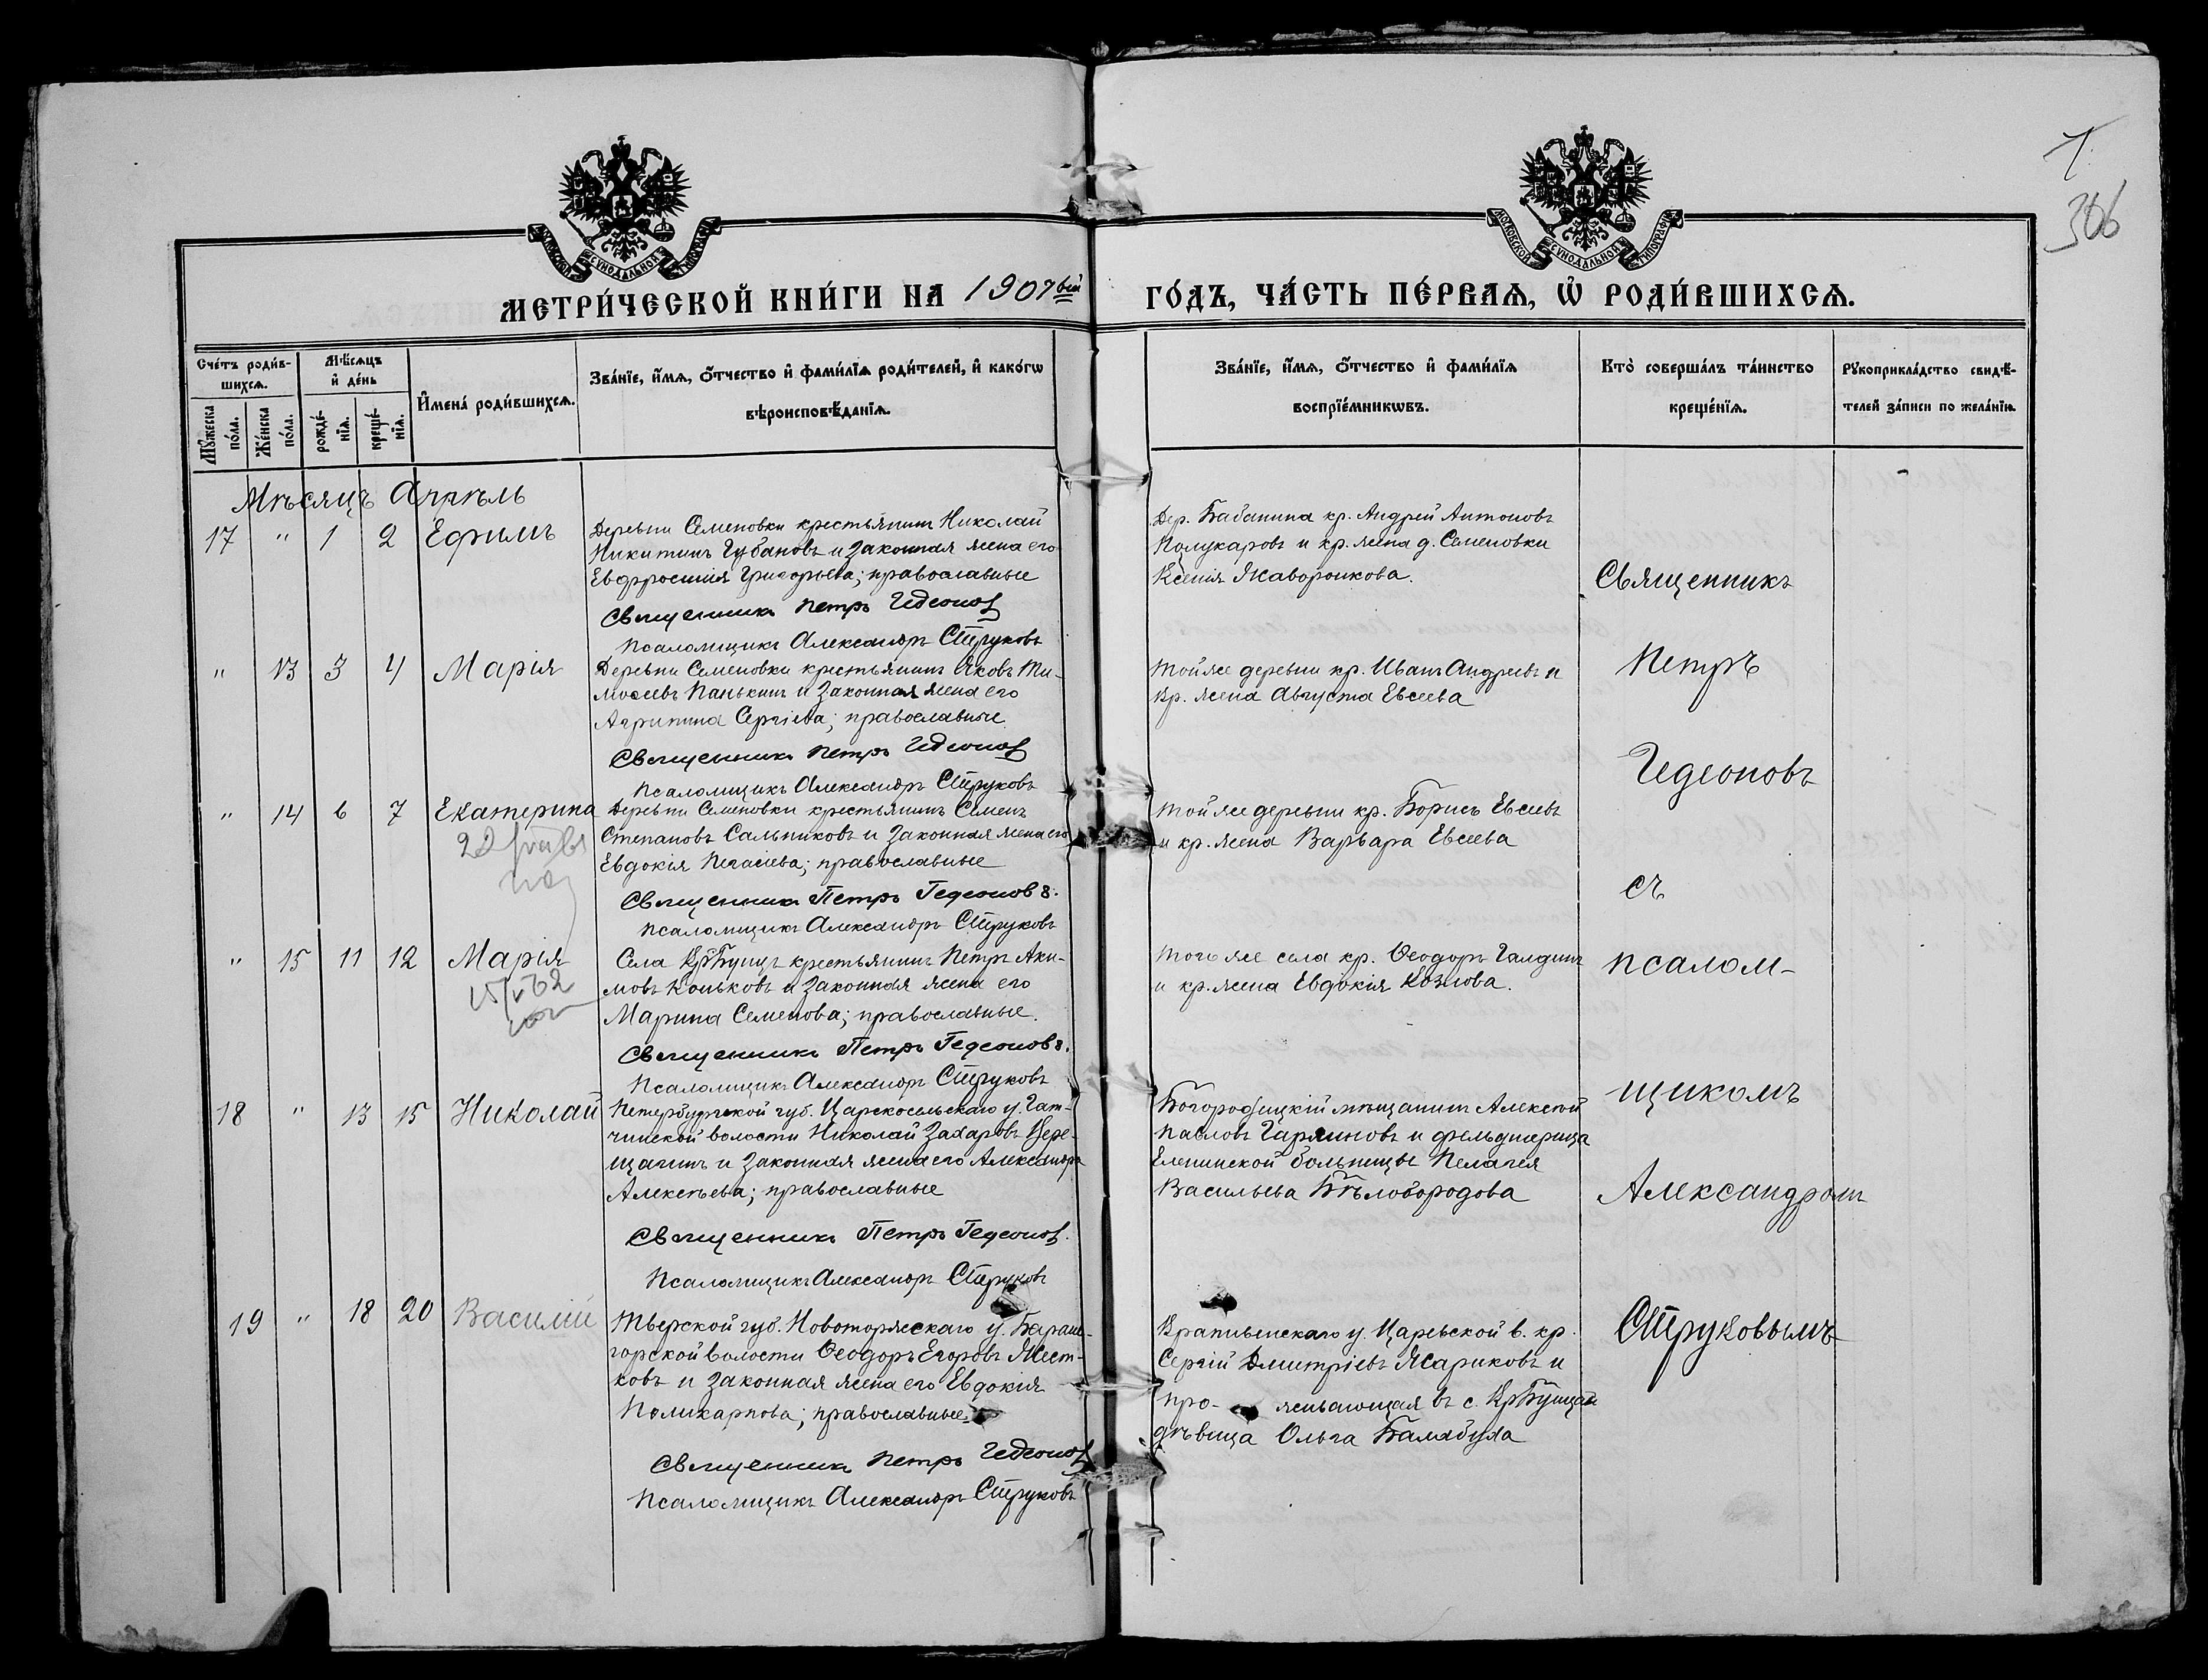 1
306
МОСКОВСКОЙ СУНОДАЛЬНОЙ ТИПОГРАФІИ
МОСКОВСКОЙ СУНОДАЛЬНОЙ ТИПОГРАФІИ
МЕТРИ́ЧЕСКОЙ КНИ́ГИ НА 1907вый ГО́ДЪ, ЧА́СТЬ ПЕ́РВАѦ, Ѡ҆ РОДИ́ВШИХСѦ.
Сче́тъ роди́в-
шихсѧ.
Мꙋ́жеска
по́ла.
Же́нска
по́ла.
Мѣ́сѧцъ
и҆ де́нь
рожде́-
нїѧ.
креще́-
нїѧ.
И҆мена̀ роди́вшихсѧ.
Зва́нїе, и҆́мѧ, ѻ҆́тчество и҆ фами́лїѧ роди́телей, и҆ како́гѡ
вѣроисповѣ́данїѧ.
Зва́нїе, и҆́мѧ, ѻ҆́тчество и҆ фами́лїѧ
воспрїе́мникѡвъ.
Кто̀ соверша́лъ та́инство
креще́нїѧ.
Рꙋкоприкла́дство свидѣ́-
телей за́писи по жела́нїю.
Мѣсяцъ Апрѣль
17 " 1 2 Ефимъ
Деревни Семеновки крестьянинъ Николай
Никитинъ Губановъ и законная жена его
Евфросинія Григорьева; православные
Священникъ Петръ Гедеоновъ
Псаломщикъ Александръ Струковъ
Дер. Бабанина кр. Андрей Антоновъ
Полукаровъ и кр. жена д. Семеновки
Ксенія Жаворонкова.
" 13 3 4 Марія
Деревни Семеновки крестьянинъ Яковъ Ти-
моѳеевъ Панькинъ и законная жена его
Агрипина Сергіева; православные
Священникъ Петръ Гедеоновъ
Псаломщикъ Александръ Струковъ
Той же деревни кр. Иванъ Андреевъ и
кр. жена Августа Евсеева
" 14 6 7 Екатерина
22
Деревни Семеновки крестьянинъ Семенъ
Степановъ Сальниковъ и законная жена его
Евдокія Пегасіева; православные
Священникъ Петръ Гедеоновъ.
Псаломщикъ Александръ Струковъ
Той же деревни кр. Борисъ Евсеевъ
и кр. жена Варвара Евсеева
" 15 11 12 Марія
Села Кр. Буицъ крестьянинъ Петръ Аки-
мовъ Коньковъ и законная жена его
Марина Семенова; православные.
Священникъ Петръ Гедеоновъ.
Псаломщикъ Александръ Струковъ
Того же села кр. Ѳеодоръ Галдинъ
и кр. жена Евдокія Козлова.
18 " 13 15 Николай
Петербургской губ. Царскосельскаго у. Гат-
чинской волости Николай Захаровъ Вере-
щагинъ и законная жена его Александра
Алексѣева; православные
Священникъ Петръ Гедеоновъ.
Псаломщикъ Александръ Струковъ
Богородицкій мѣщанинъ Алексѣй
Павловъ Гаряиновъ и фельдшерица
Еленинской больницы Пелагея
Васильева Бѣлобородова
19 " 18 20 Василій
Тверской губ. Новоторжскаго у. Баран-
горской волости Ѳеодоръ Егоровъ Жест-
ковъ и законная жена его Евдокія
Поликарпова; православные.
Священникъ Петръ Гедеоновъ
Псаломщикъ Александръ Струковъ
Крапивенскаго у. Царевской в. кр.
Сергій Дмитріевъ Жариковъ и
про- живающая въ с. Кр. Буицахъ
дѣвица Ольга Балабуха
Священникъ
Петръ
Гедеоновъ
съ
псалом-
щикомъ
Александромъ
Струковымъ